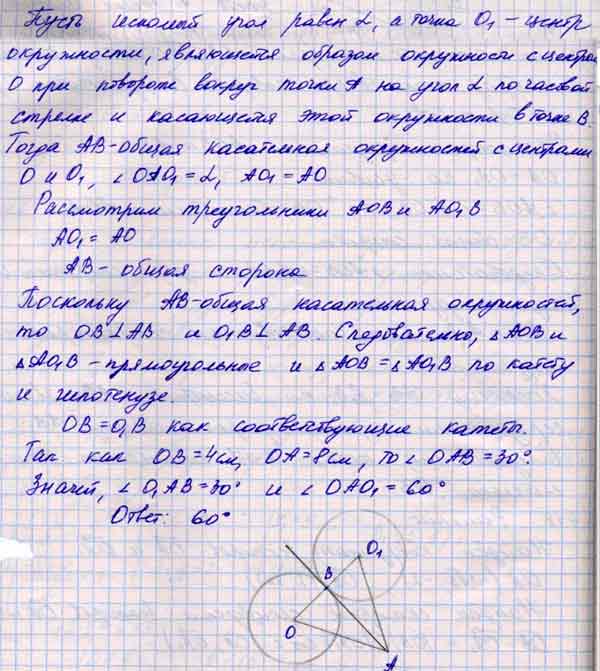 Пусть искомый угол равен α, а точка O₁ – центр
окружности, являющейся образом окружности с центром
O при повороте вокруг точки A на угол α по часовой
стрелке и касающейся этой окружности в точке B.
Тогда AB-общая касательная окружностей с центрами
O и O₁, ∠OAO₁ = α, AO₁ = AO
Рассмотрим треугольники AOB и AO₁B
AO₁ = AO
AB – общая сторона
Поскольку AB-общая касательная окружностей,
то OB⊥AB и O₁B⊥AB. Следовательно, △AOB и
△AO₁B – прямоугольные и △AOB = △AO₁B по катету
и гипотенузе.
OB = O₁B как соответствующие катеты.
Так как OB = 4см, OA = 8см, то ∠OAB = 30°.
Значит, ∠O₁AB = 30° и ∠OAO₁ = 60°
Ответ: 60°
O₁
B
O
A